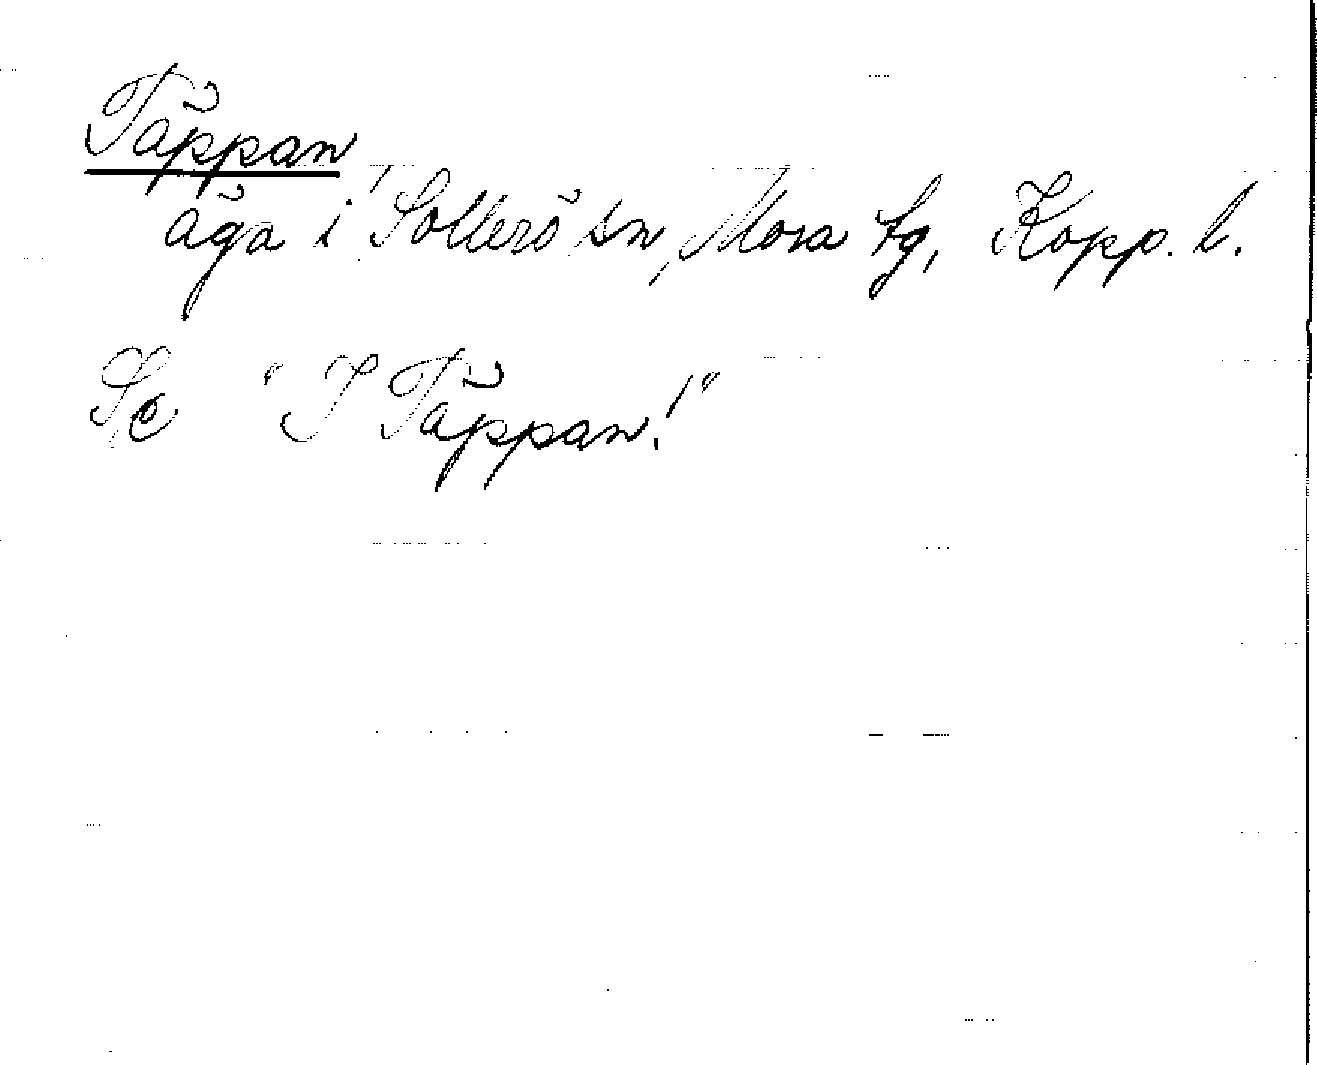 Täppan
äga i Sollerö sn, Mora tg, Kopp. l.
Se "I Täppan!"